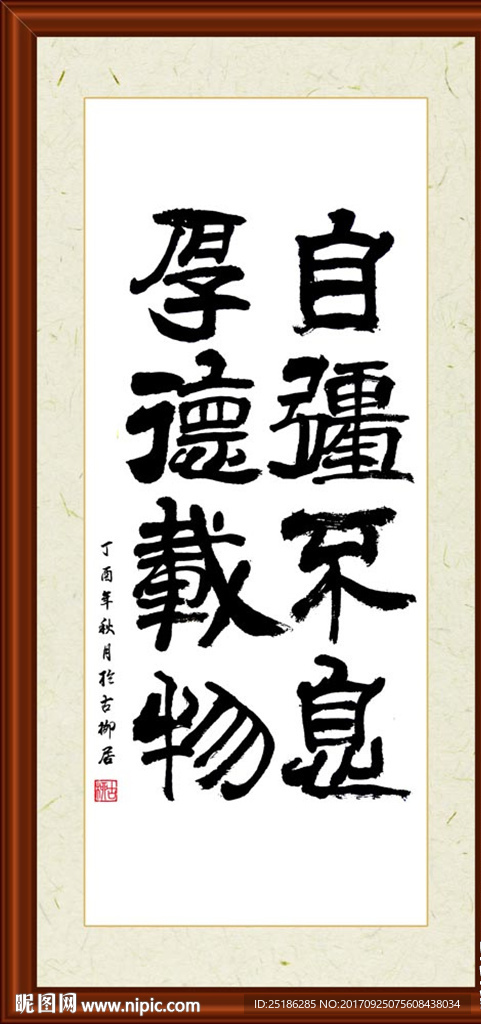 自彊不息
厚德載物
丁酉年秋月於古柳居
昵图网 www.nipic.com
ID:25186285 NO:20170925075608438034